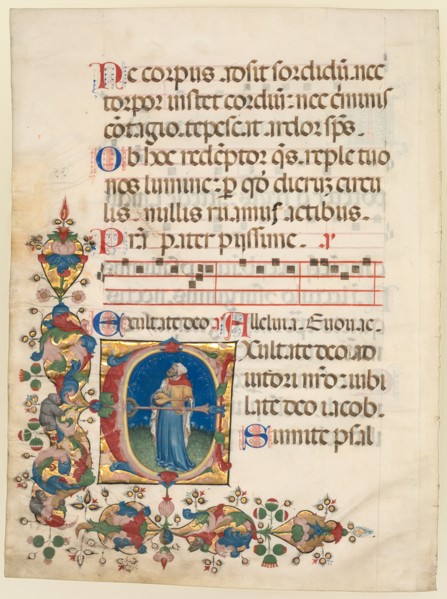 Ne corpus adsit sordidū. nec
torpor instet cordiū: nec cīminis
cōtagio. tepescat ardor sp̄s.
Ob hoc redēptor q̄s. reple tuo
nos lumine: ꝑ qđ dieruꝫ circu
lis. nullis ruamus actibus.
Prā pater piissime.
Exultate deo. Alleluia. Euouae.
Exultate deo ad
iutori nr̄o: iubi
late deo iacob.
Sumite psal